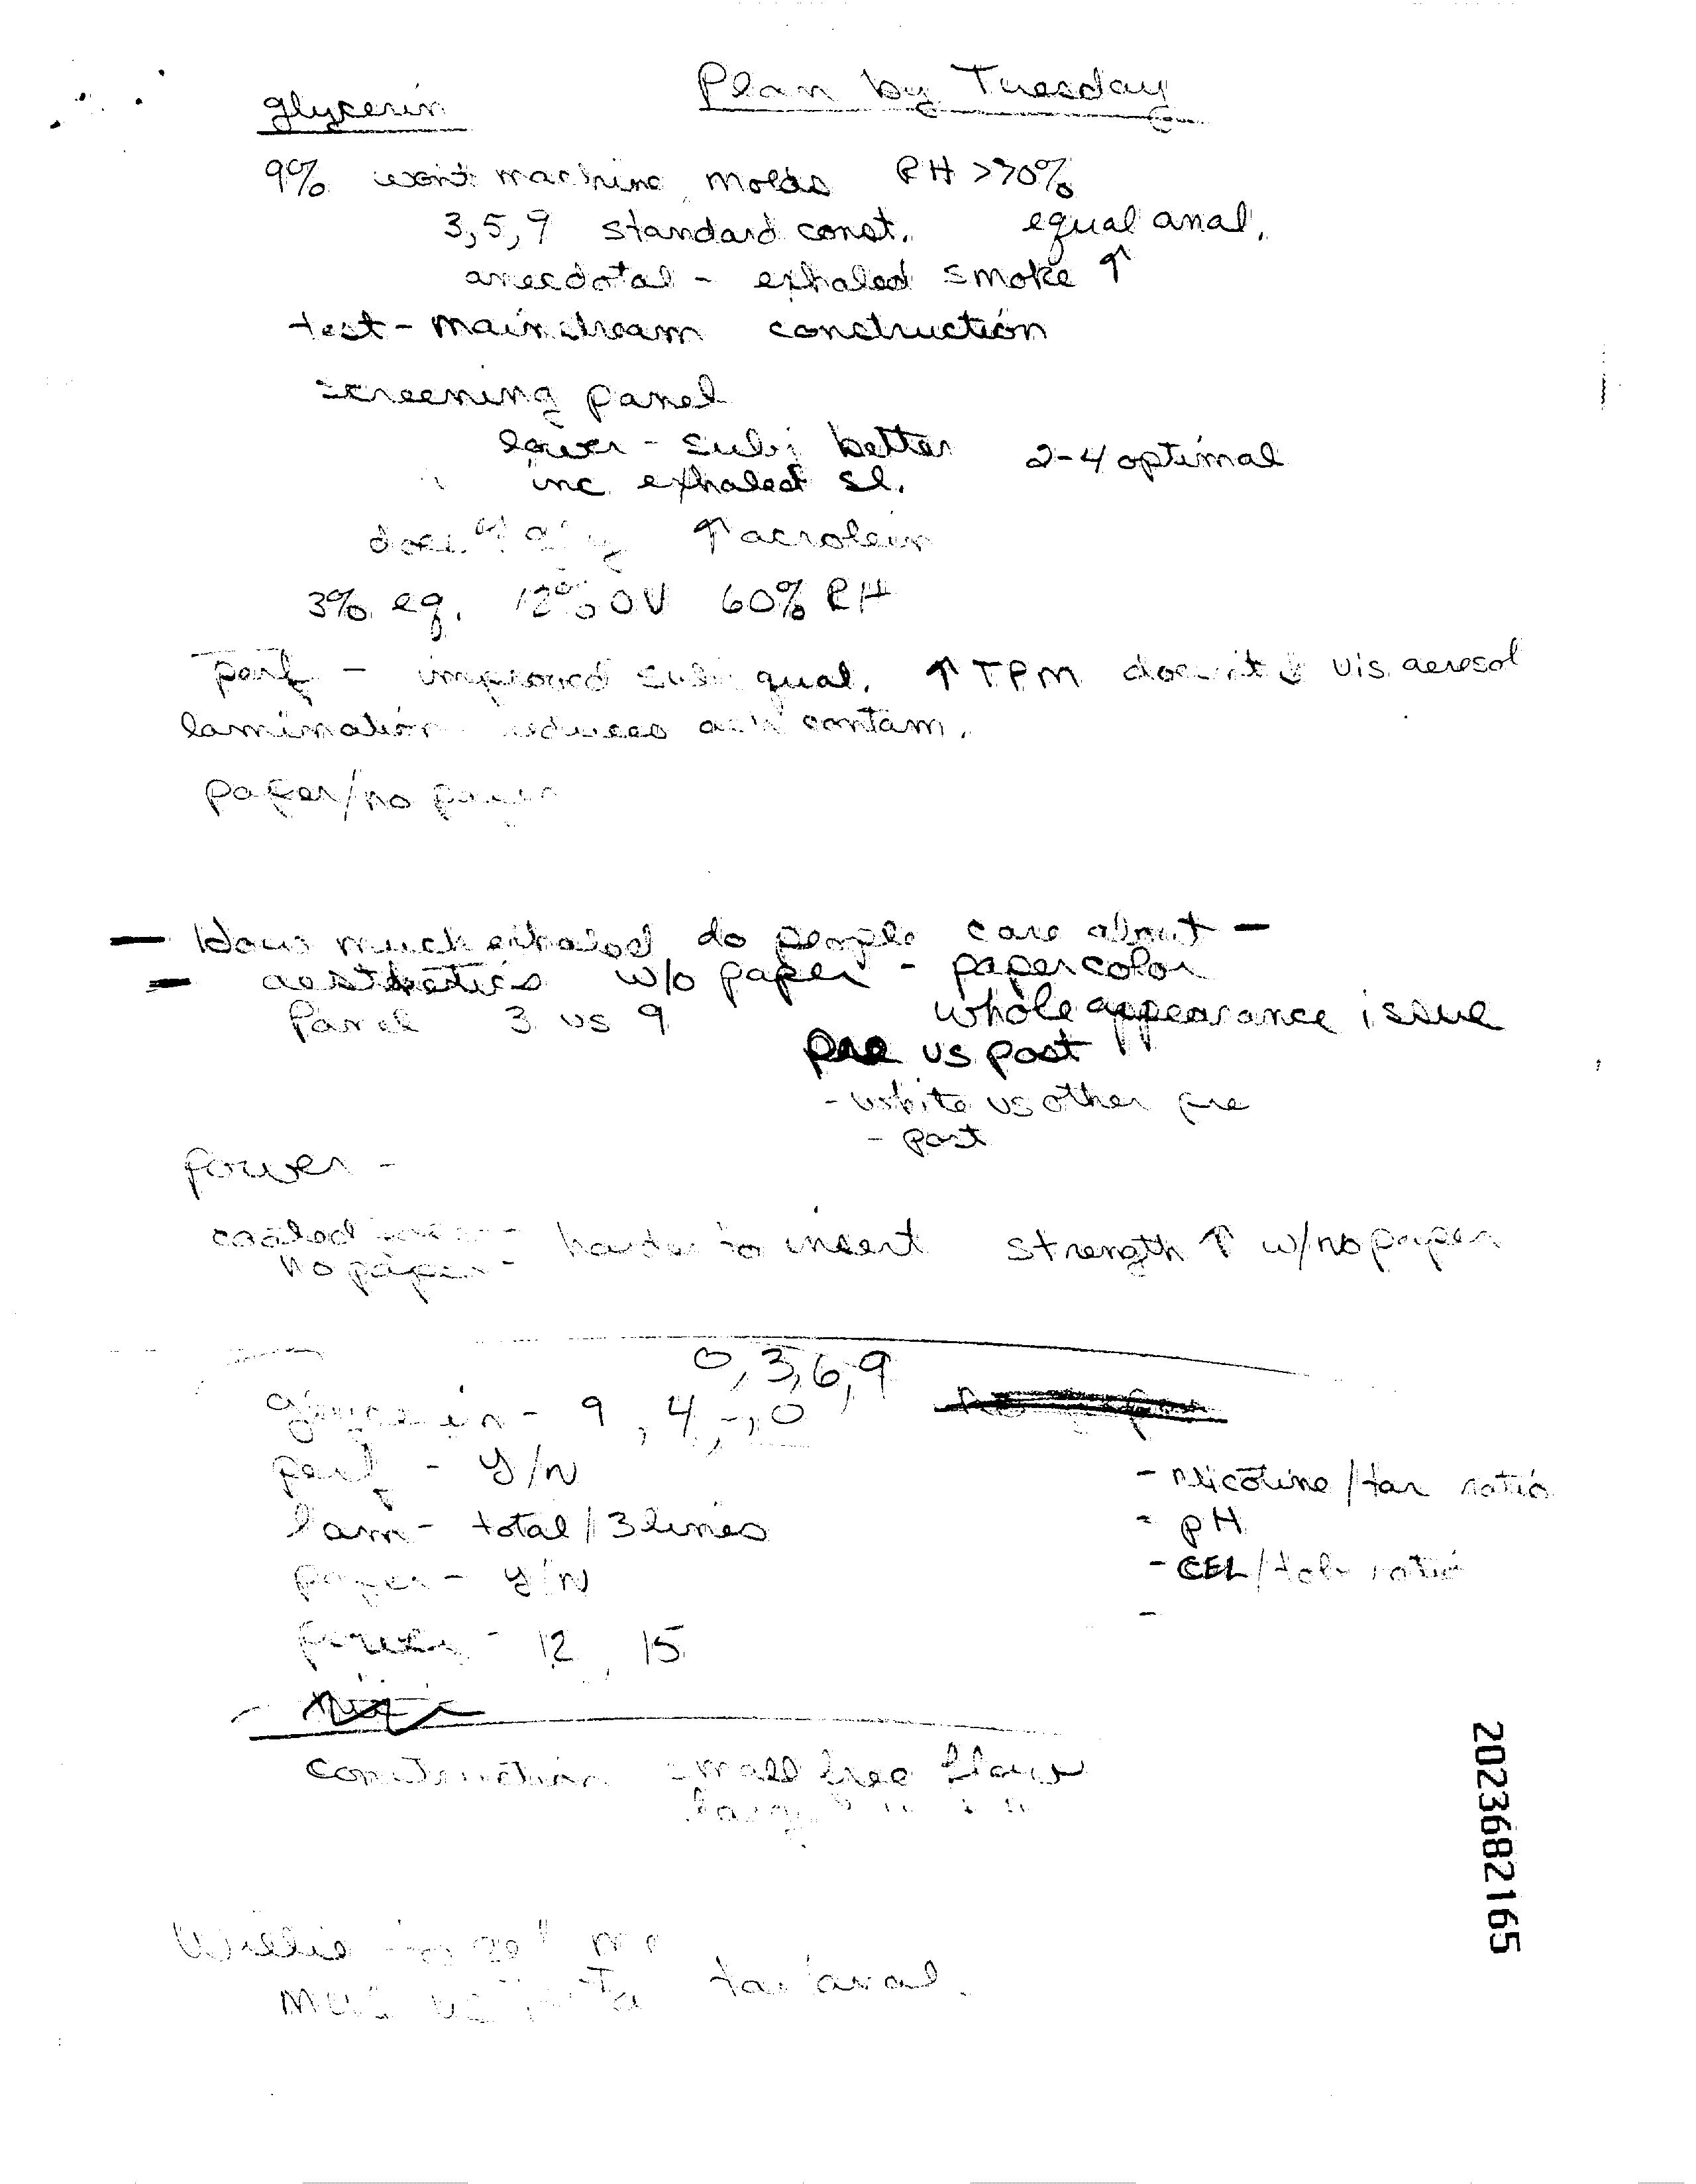 Plan by Tuesday
glycerin
9% won't machine, molds RH >70%
3,5,9 standard const. equal anal.
anecdotal - exhaled smoke ↑
test - mainstream construction
screening panel
lower - subj better 2-4 optimal
inc exhaled sl.
↑ acrolein
3% eq. 12% OV 60% RH
perf - improved subj qual. ↑ TPM doesn't vis. aerosol
lamination reduces contam.
paper/no paper
- How much exhaled do people care about -
- aesthetics w/o paper - paper color
Panel 3 vs 9 whole appearance issue
pre vs post
- white vs other pre
- post
power -
coated harder to insert strength ↑ w/no paper
no paper -
0,3,6,9
glycerin - 9, 4, 0
perf - Y/N
- nicotine/tar ratio
lam - total/3 lines
- pH
paper - Y/N
- CEL/tob ratio
-
power - 12, 15
construction small free flow
large " "
Willie
2023682165